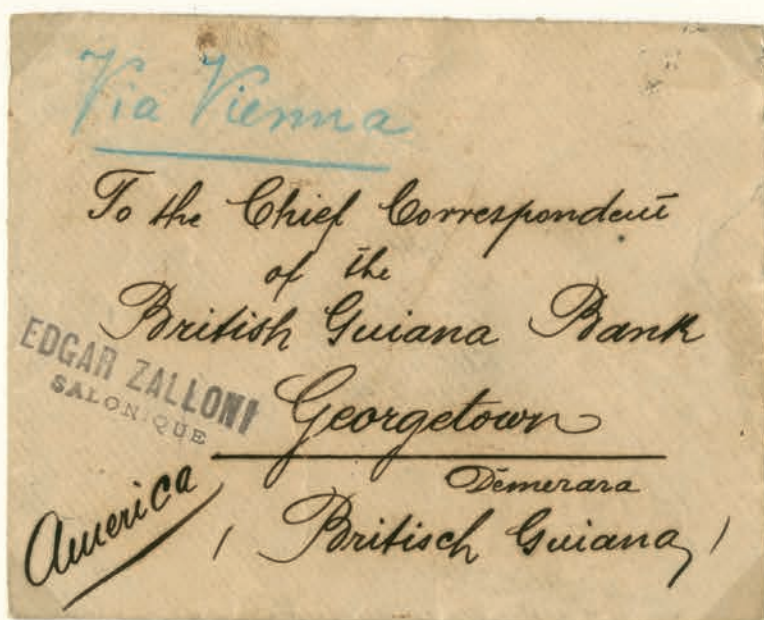 Via Vienna
To the Chief Correspondent
of the
British Guiana Bank
EDGAR ZALLONI
SALONIQUE
Georgetown
Demerara
America
( Britisch Guiana )